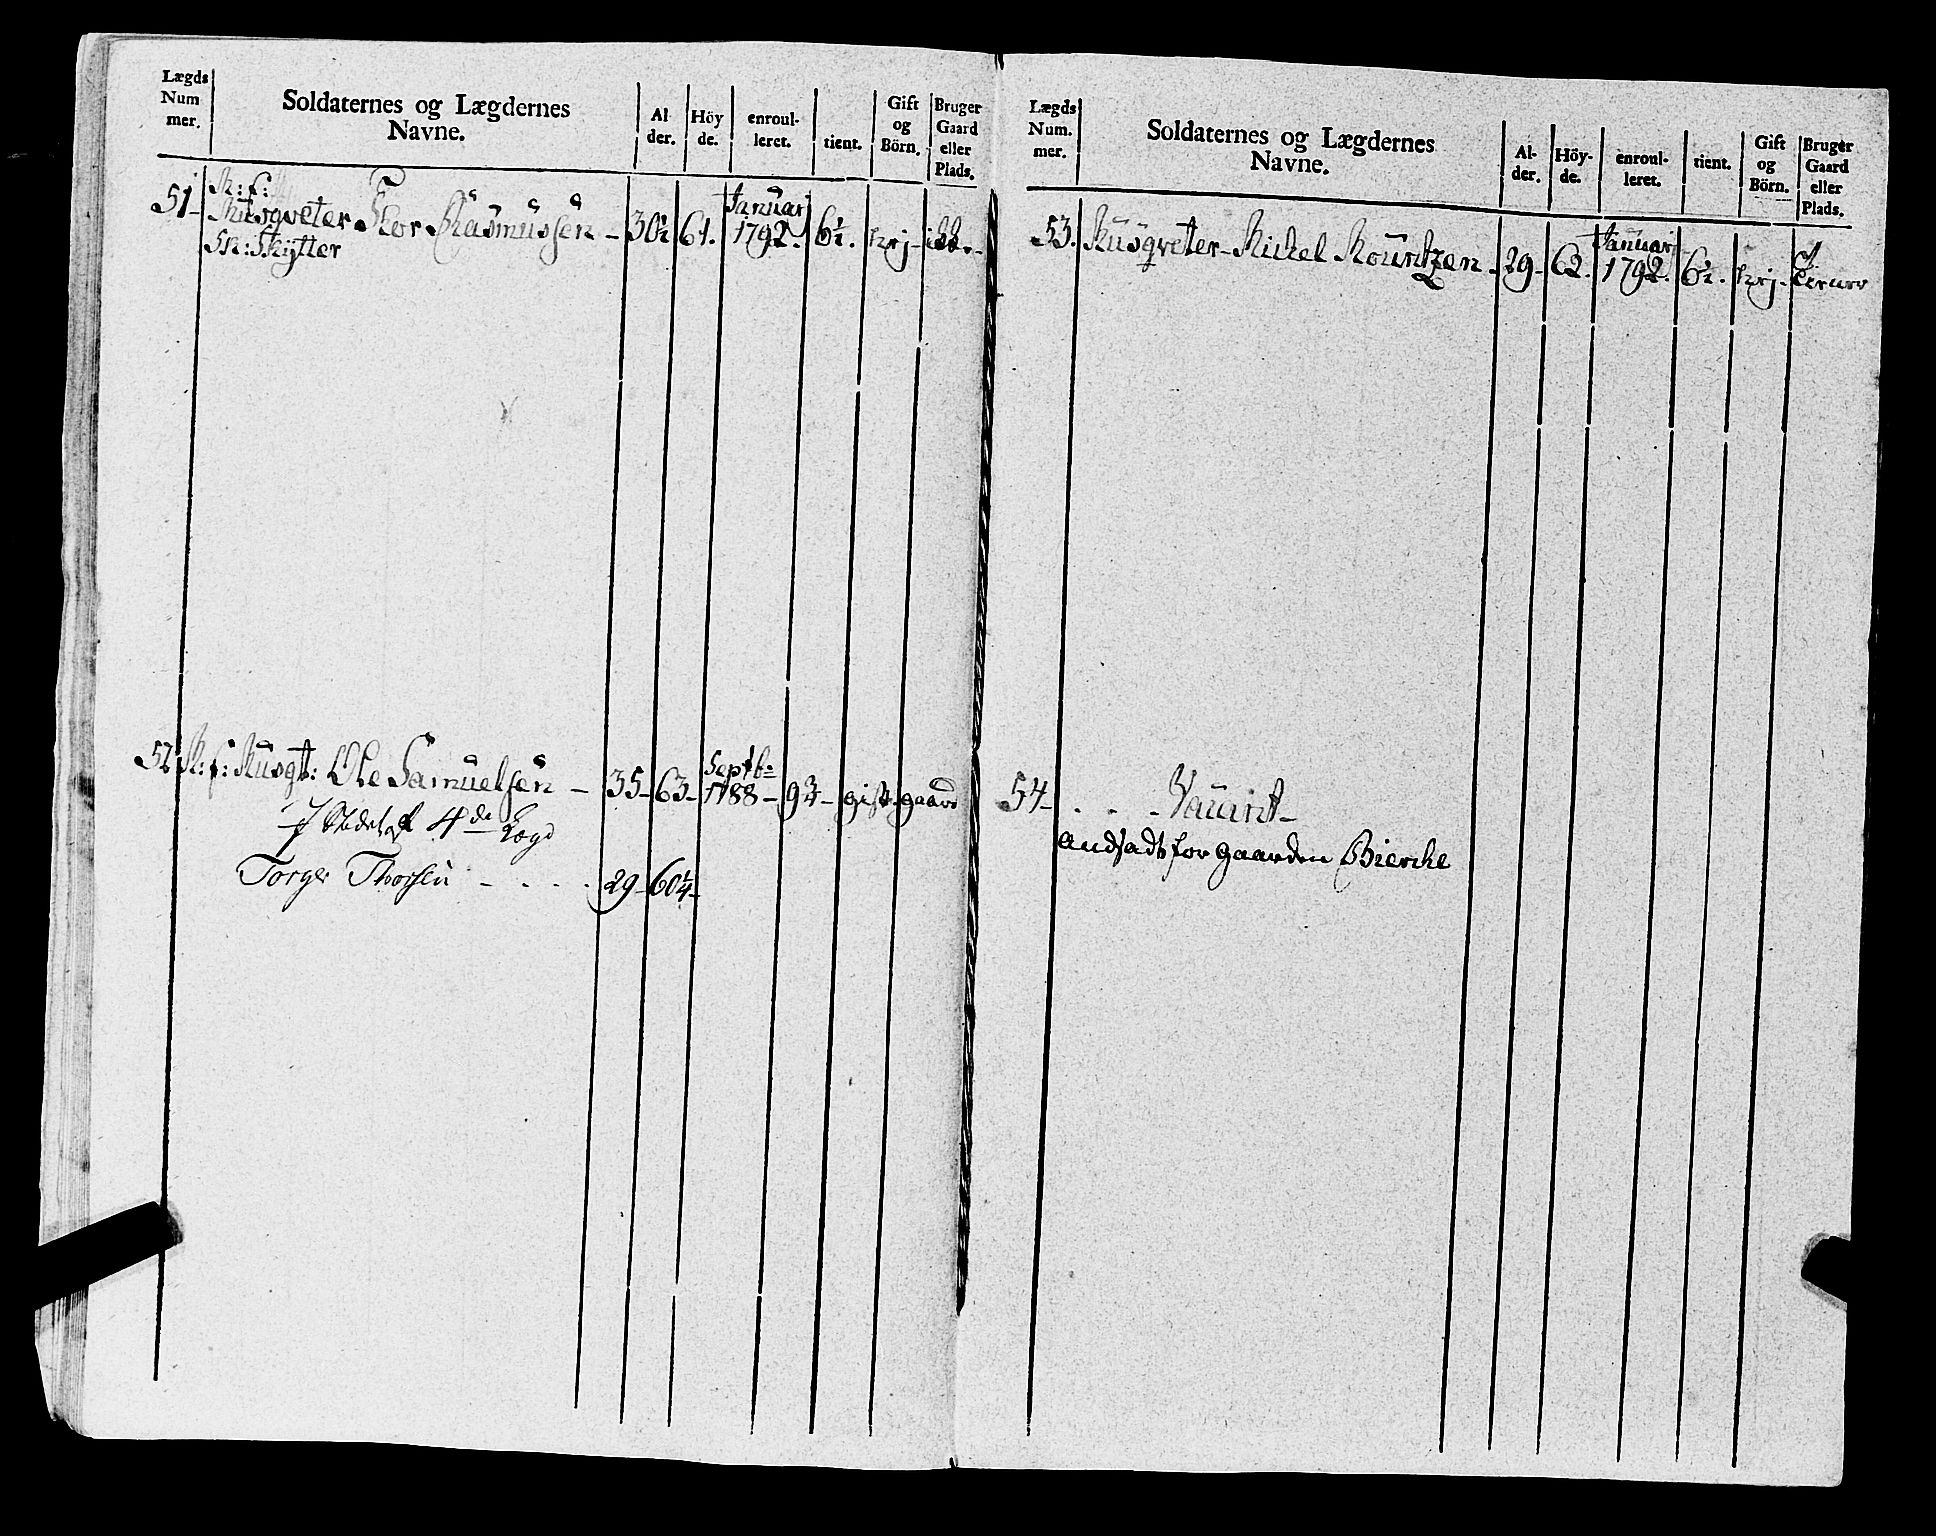 Lægds
Num
mer.
Soldaternes og Lægdernes
Navne.
Al
der.
Höy
de.
enroul-
leret.
tient.
Gift
og
Börn.
Bruger
Gaard
eller
Plads.
51- Musqveter Thor Rasmussen - 30½ 61. Januar 1792. 6½.
Skytter
52 Ole Samuelsen - 35- 63- Septb: 1788- 9¾- gift- gaard
4de Lægd
Torger Thorsen - . . . . 29- 60¼-
Lægds
Num.
mer.
Soldaternes og Lægdernes
Navne.
Al-
der.
Höy-
de.
enroul-
leret.
tient.
Gift
og
Börn.
Bruger
Gaard
eller
Plads.
53. Musqveter- Mickel Knuntzen - 29- 62. Januar 1792. 6½.
54- . . . - Vacant-
andsadt for gaarden Biercke